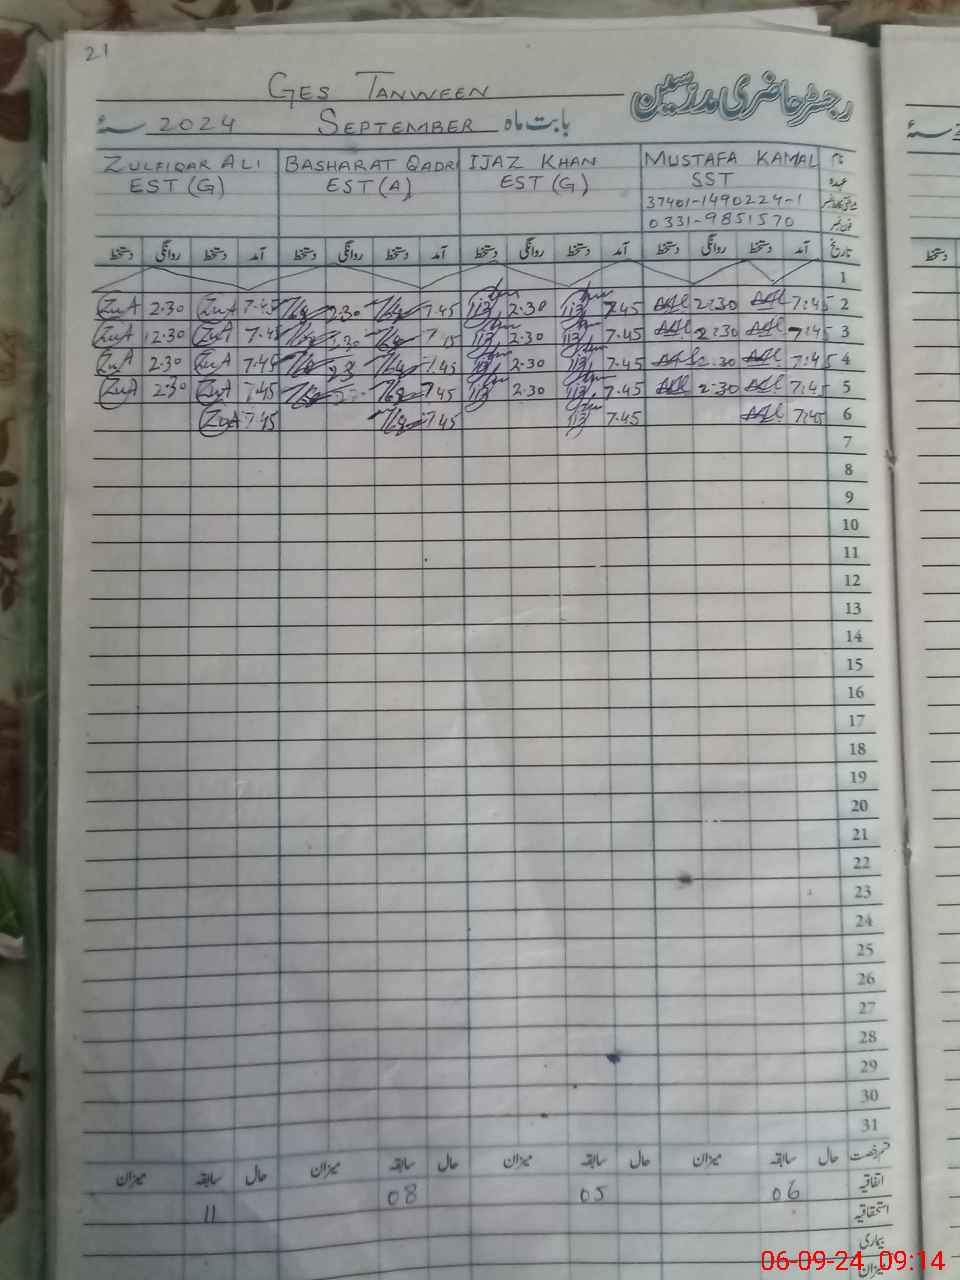 21
GES TANWEEN رجسٹر حاضری مدرسین
بابت ماہ SEPTEMBER 2024 سنۂ
ZULFIQAR ALI BASHARAT QADRI IJAZ KHAN MUSTAFA KAMAL نام
EST (G) EST (A) EST (G) SST عہدہ
37401-1490224-1
0331-9851570 فون نمبر
تاریخ آمد دستخط روانگی دستخط آمد دستخط روانگی دستخط آمد دستخط روانگی دستخط آمد دستخط روانگی دستخط
1
ZuA 2.30 ZuA 7.45 2.30 7.45 2.30 7.45 2:30 7:45 2
ZuA 2.30 ZuA 7.45 2.30 7.45 2:30 7:45 3
ZuA 2.30 ZuA 7.45 7.45 2.30 7.45 2:30 7:45 4
ZuA 2.30 ZuA 7.45 7.45 2.30 7.45 2:30 7:45 5
ZuA 7.45 7.45 7.45 7:45 6
7
8
9
10
11
12
13
14
15
16
17
18
19
20
21
22
23
24
25
26
27
28
29
30
31
قسم رخصت حال سابقہ میزان حال سابقہ میزان حال سابقہ میزان حال سابقہ میزان
08 05 06 اتفاقیہ
11 استحقاقیہ
بیماری
میزان
06-09-24 09:14